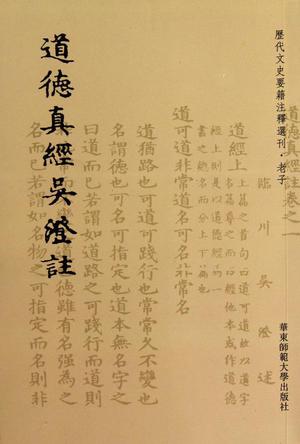 歷代文史要籍注釋選刊·老子
道德真經吳澄註
華東師範大學出版社
道德真經註卷之一
臨川吳澄述
道經上
上篇之首句曰道可道故以道字
名篇尊之而曰經他本或作道德
經上則是以道德經
書之總名而分上下篇也
道可道非常道名可名非常名
道猶路也可道可踐行也常常久不變也
名謂德也可名可指定也道本無名字之
曰道而已若謂如道路之可踐行而道則
非常德雖有名強為之
名而已若謂如名物之可指定而名則非